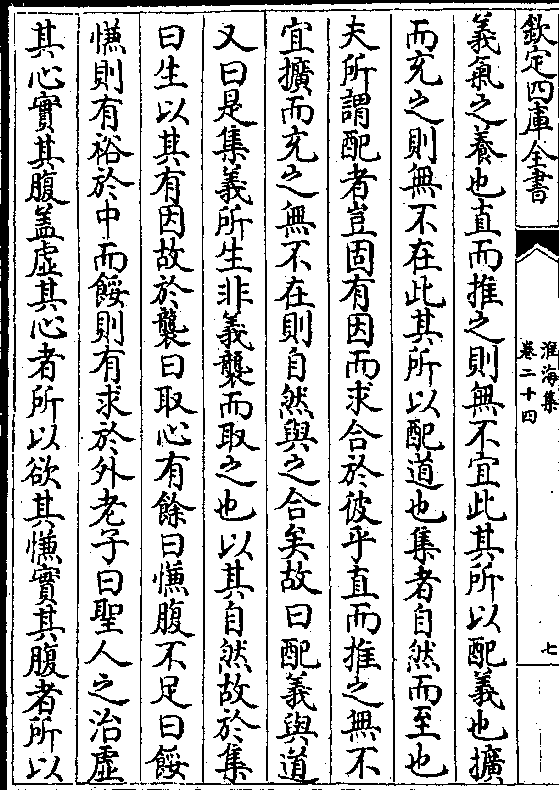 欽定四庫全書
淮海集
卷二十四
七
義氣之養也直而推之則無不宜此其所以配義也擴
而充之則無不在此其所以配道也集者自然而至也
夫所謂配者豈固有因而求合於彼乎直而推之無不
宜擴而充之無不在則自然與之合矣故曰配義與道
又曰是集義所生非義襲而取之也以其自然故於集
曰生以其有因故於襲曰取心有餘曰慊腹不足曰餒
慊則有裕於中而餒則有求於外老子曰聖人之治虛
其心實其腹盖虛其心者所以欲其慊實其腹者所以